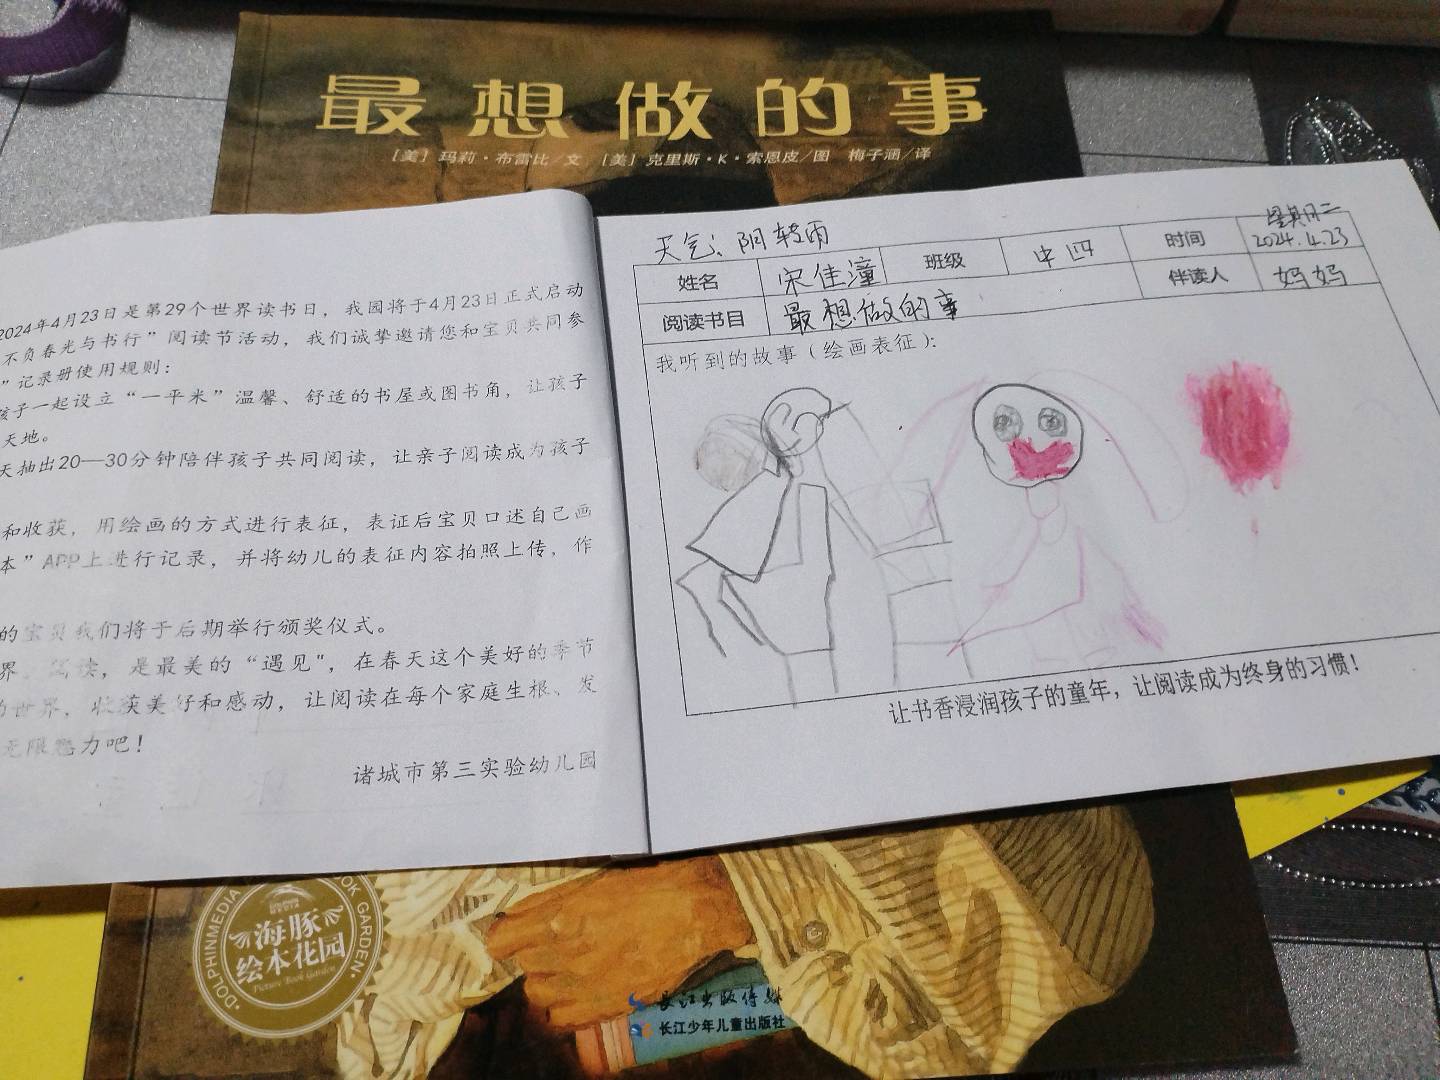 最想做的事
［美］玛莉·布雷比/文 ［美］克里斯·K·索恩皮/图 梅子涵/译
2024年4月23日是第29个世界读书日，我园将于4月23日正式启动
不负春光与书行”阅读节活动，我们诚挚邀请您和宝贝共同参
”记录册使用规则：
孩子一起设立“一平米”温馨、舒适的书屋或图书角，让孩子
天地。
天抽出20—30分钟陪伴孩子共同阅读，让亲子阅读成为孩子
和收获，用绘画的方式进行表征，表证后宝贝口述自己画
本”APP上进行记录，并将幼儿的表征内容拍照上传，作
的宝贝我们将于后期举行颁奖仪式。
界，阅读，是最美的“遇见"，在春天这个美好的季节
的世界，收获美好和感动，让阅读在每个家庭生根、发
无限魅力吧！
诸城市第三实验幼儿园
天气：阴转雨
星期二
姓名 宋佳潼 班级 中四 时间 2024.4.23
阅读书目 最想做的事 伴读人 妈妈
我听到的故事（绘画表征）：
让书香浸润孩子的童年，让阅读成为终身的习惯！
DOLPHINMEDIA
BOOK GARDEN
海豚
绘本花园
Picture Book Garden
长江出版传媒
长江少年儿童出版社